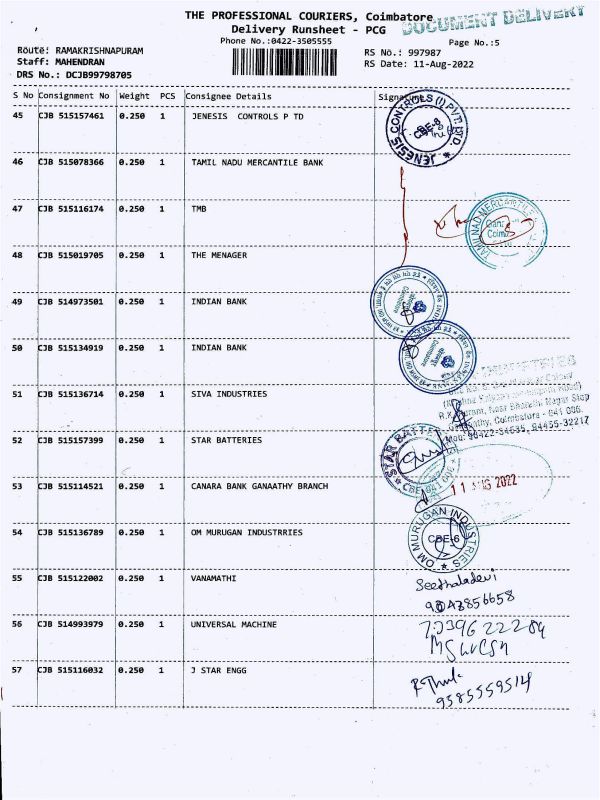 THE PROFESSIONAL COURIERS, Coimbatore
DOCUMENT DELIVERY
Delivery Runsheet - PCG
Phone No.:0422-3505555
Page No.:5
Route: RAMAKRISHNAPURAM
RS No.: 997987
Staff: MAHENDRAN
RS Date: 11-Aug-2022
DRS No.: DCJB99798705
S No Consignment No Weight PCS Consignee Details Signature
45 CJB 515157461 0.250 1 JENESIS CONTROLS P TD
JENESIS CONTROLS (I) PVT. LTD.
CBE-6
46 CJB 515078366 0.250 1 TAMIL NADU MERCANTILE BANK
47 CJB 515116174 0.250 1 TMB
TAMILNAD MERCANTILE
48 CJB 515019705 0.250 1 THE MENAGER
49 CJB 514973501 0.250 1 INDIAN BANK
50 CJB 515134919 0.250 1 INDIAN BANK
51 CJB 515136714 0.250 1 SIVA INDUSTRIES
R.K. Puram, Near Bharathi Nagar Stop
Ganapathy, Coimbatore - 641 006.
94455-32217
52 CJB 515157399 0.250 1 STAR BATTERIES
STAR BATTERIES
53 CJB 515114521 0.250 1 CANARA BANK GANAATHY BRANCH
11 AUG 2022
54 CJB 515136789 0.250 1 OM MURUGAN INDUSTRRIES
OM MURUGAN INDUSTRIES
CBE-6
55 CJB 515122002 0.250 1 VANAMATHI
Seethaladevi
56 CJB 514993979 0.250 1 UNIVERSAL MACHINE
57 CJB 515116032 0.250 1 J STAR ENGG
9585559514